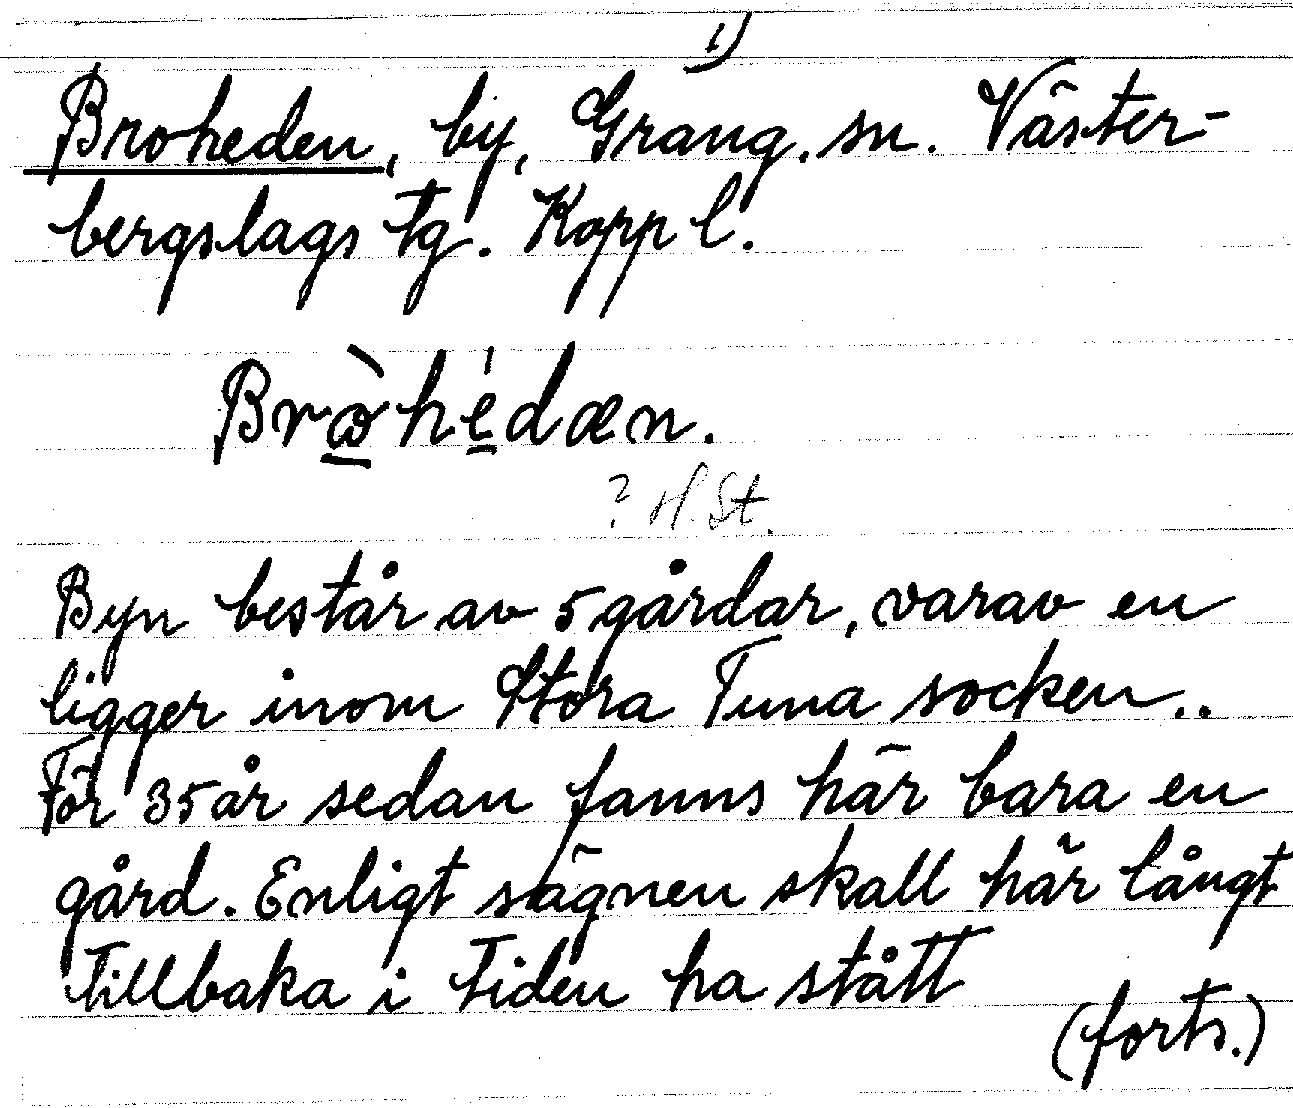 1)
Broheden, by, Grang. sn. Väster-
bergslags tg. Kopp l.
Brὼhédæn.
? H. St.
Byn består av 5 gårdar, varav en
ligger inom Stora Tuna socken..
För 35 år sedan fanns här bara en
gård. Enligt sägnen skall här långt
tillbaka i tiden ha stått
(forts.)